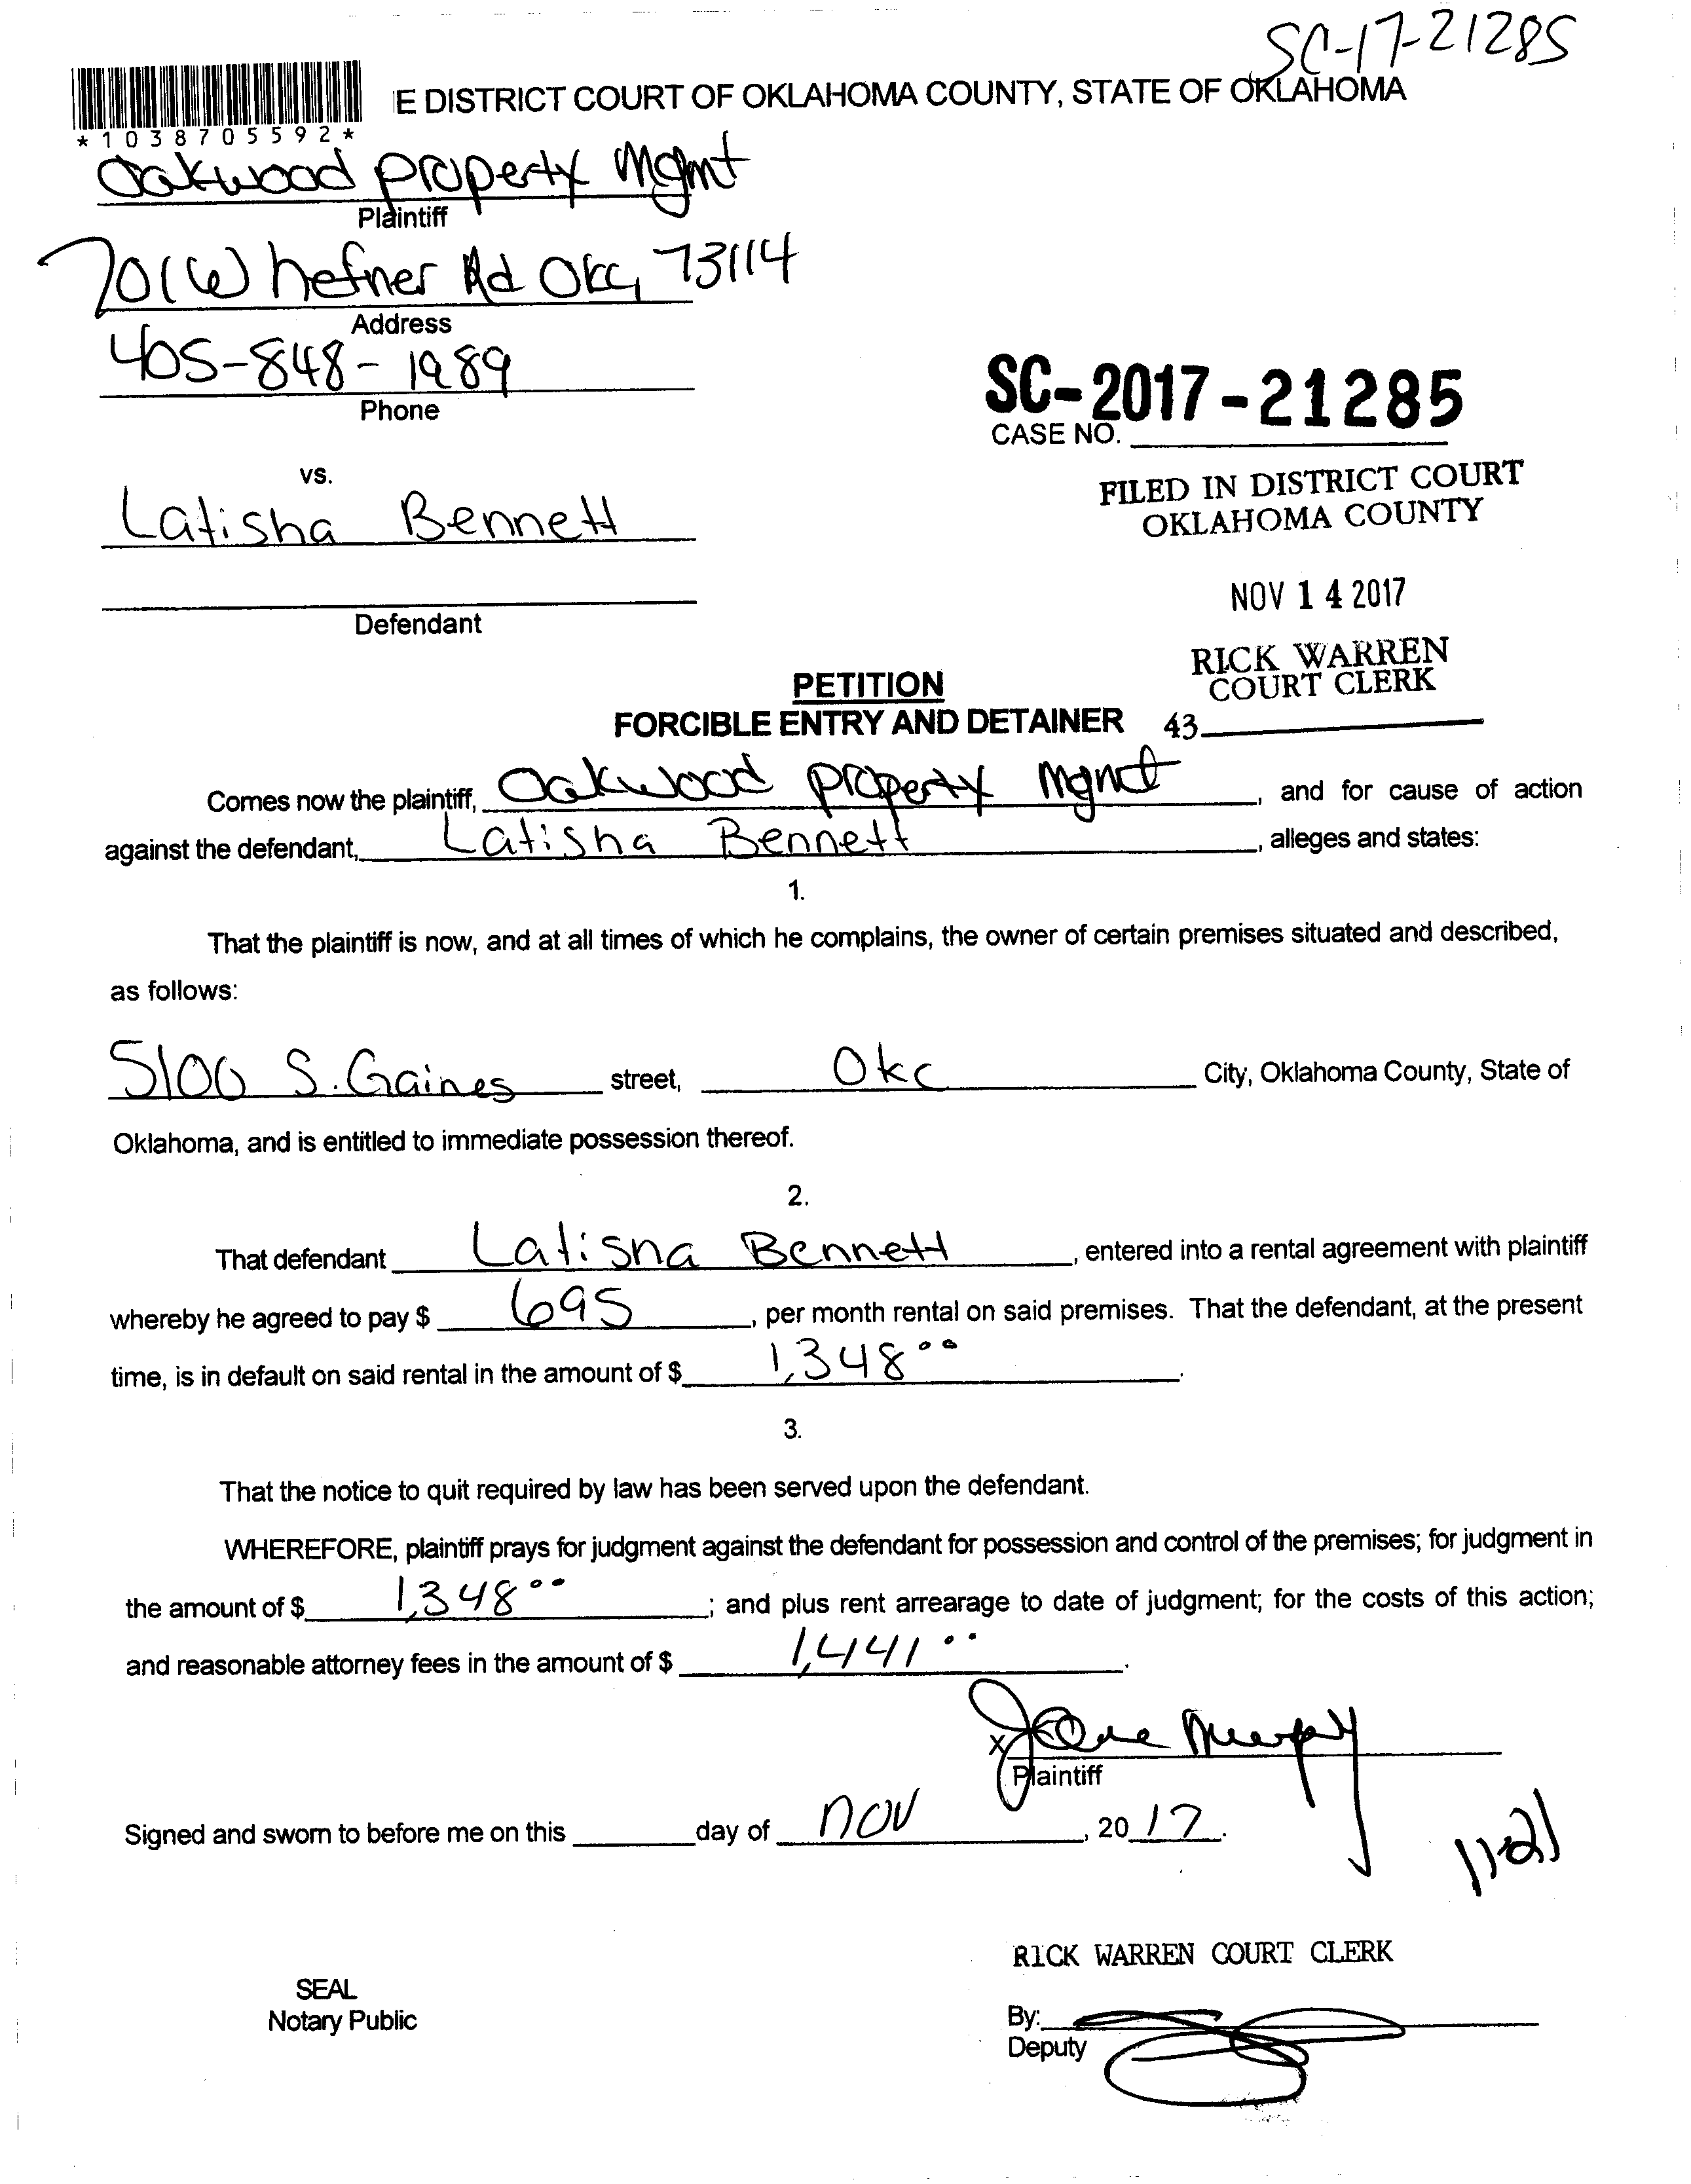 SC-17-21285
E DISTRICT COURT OF OKLAHOMA COUNTY, STATE OF OKLAHOMA
*1038705592*
Oakwood Property Mgmt
Plaintiff
701 W hefner Rd Okc, 73114
Address
405-848-1989
Phone
SC-2017-21285
CASE NO.
vs.
FILED IN DISTRICT COURT
OKLAHOMA COUNTY
Latisha Bennett
NOV 14 2017
Defendant
RICK WARREN
COURT CLERK
PETITION
FORCIBLE ENTRY AND DETAINER
43
Comes now the plaintiff, Oakwood Property Mgnct, and for cause of action
against the defendant, Latisha Bennett, alleges and states:
1.
That the plaintiff is now, and at all times of which he complains, the owner of certain premises situated and described,
as follows:
5100 S. Gaines street, Okc City, Oklahoma County, State of
Oklahoma, and is entitled to immediate possession thereof.
2.
That defendant Latisha Bennett, entered into a rental agreement with plaintiff
whereby he agreed to pay $ 695, per month rental on said premises. That the defendant, at the present
time, is in default on said rental in the amount of $ 1,348 00.
3.
That the notice to quit required by law has been served upon the defendant.
WHEREFORE, plaintiff prays for judgment against the defendant for possession and control of the premises; for judgment in
the amount of $ 1,348 00; and plus rent arrearage to date of judgment; for the costs of this action;
and reasonable attorney fees in the amount of $ 1,441 00.
x
Plaintiff
Signed and sworn to before me on this day of nov, 20 17.
11-21
RICK WARREN COURT CLERK
SEAL
Notary Public
By:
Deputy